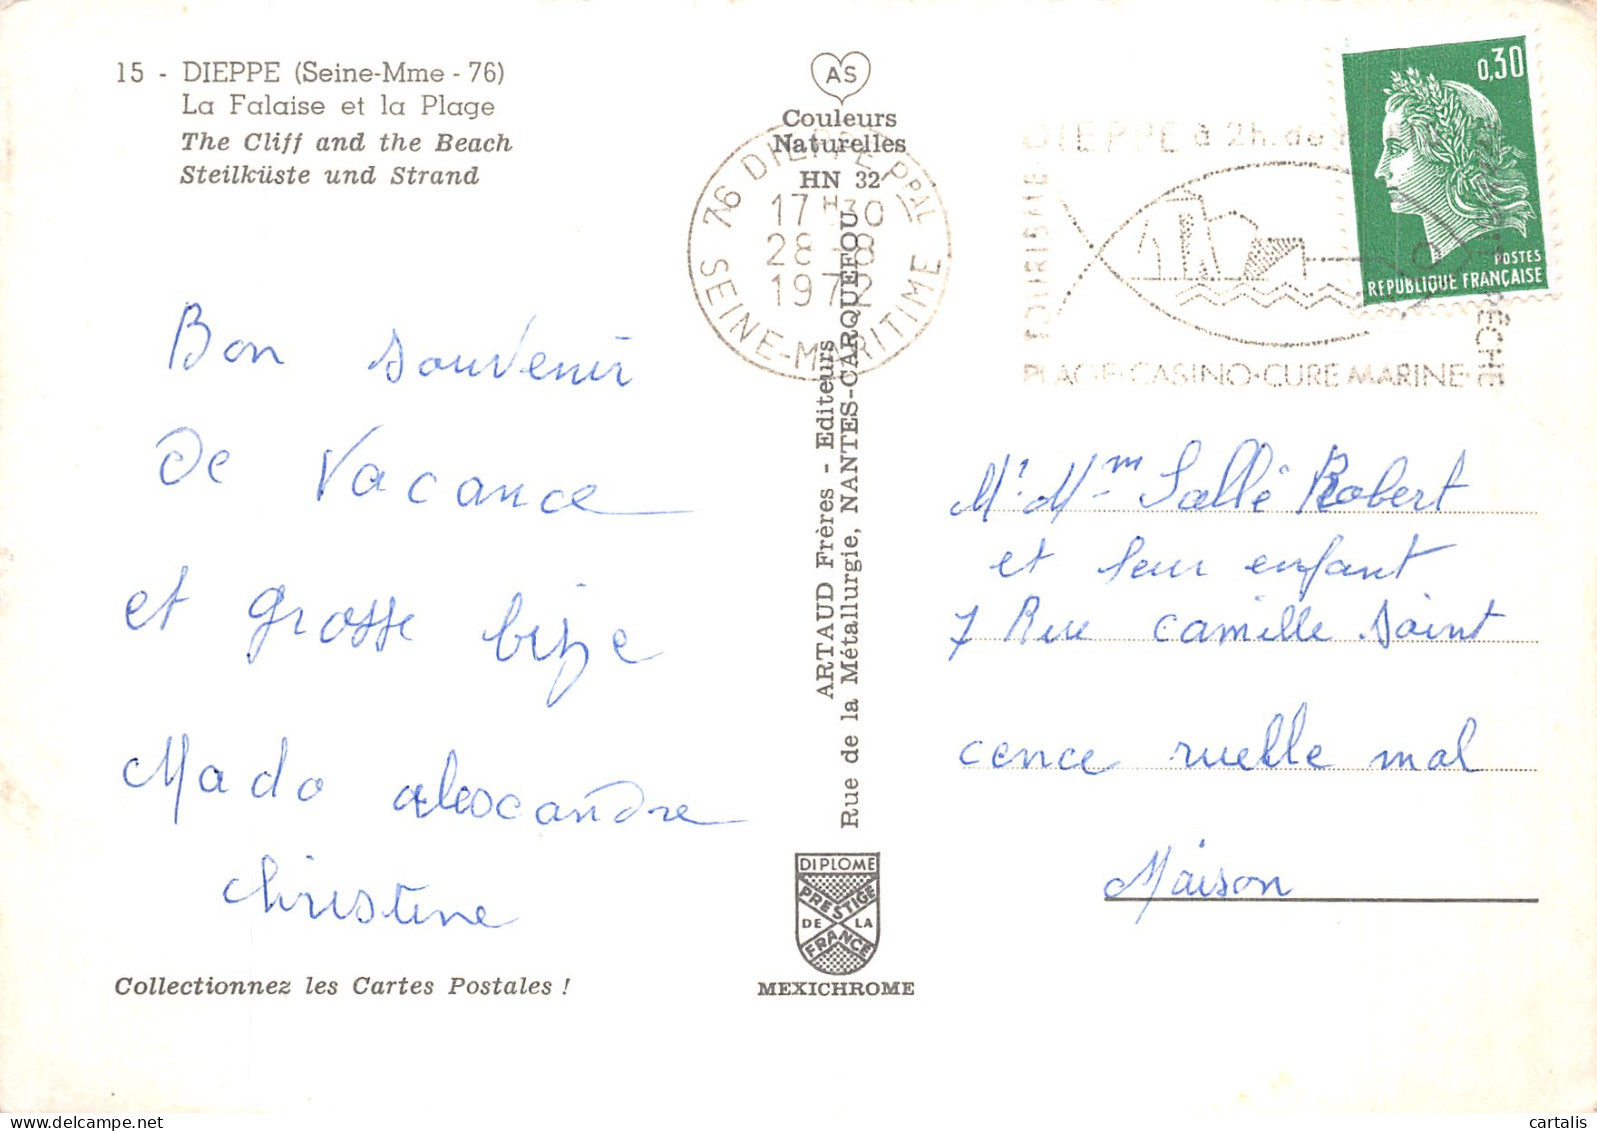 15 - DIEPPE (Seine-Mme - 76)
La Falaise et la Plage
The Cliff and the Beach
Steilküste und Strand
Bon souvenir
de Vacance
et grosse bize
Mado alexandre
christine
Collectionnez les Cartes Postales !
AS
Couleurs
Naturelles
HN 32
76 DIEPPE PPAL
17H30
28-8
1972
SEINE-MARITIME
ARTAUD Frères - Editeurs
Rue de la Métallurgie, NANTES-CARQUEFOU
DIPLOME
PRESTIGE
DE LA
FRANCE
MEXICHROME
DIEPPE à 2h. de
PLAGE·CASINO·CURE MARINE·
0,30
POSTES
REPUBLIQUE FRANÇAISE
Mr. Mme Sallé Robert
et leur enfant
7 Rue camille saint
cence ruelle mal
Maison
cartalis